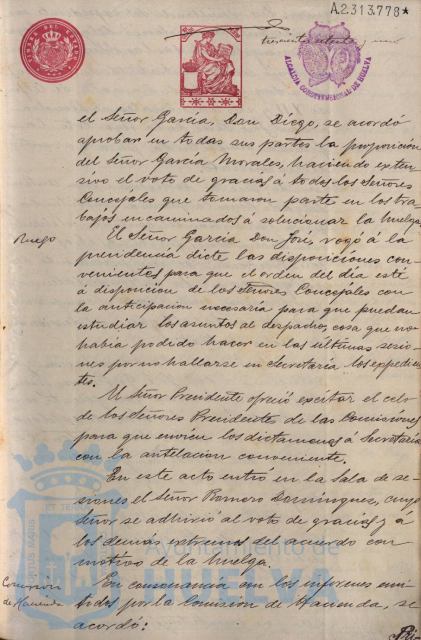 A2.313.778*
TIMBRE DEL ESTADO
ALCALDIA CONSTITUCIONAL DE HUELVA
el Señor García, Don Diego, se acordó
aprobar en todas sus partes la proposición
del Señor García Morales, haciendo exten-
sivo el voto de gracias á todos los Señores
Concejales que tomaron parte en los tra-
bajos encaminados á solucionar la huelga.
Ruego
El Señor García Don José, rogó á la
presidencia dicte las disposiciones con-
venientes para que el orden del día esté
á disposición de los Señores Concejales con
la anticipación necesaria para que puedan
estudiar los asuntos al despacho, cosa que no
había podido hacer en las últimas sesio-
nes por no hallarse en Secretaría los expedien-
tes.
El Señor Presidente ofreció excitar el celo
de los Señores Presidentes de las Comisiones
para que envíen los dictamenes á Secretaría
con la antelación conveniente.
En este acto entró en la Sala de se-
siones el Señor Romero Dominguez, cuyo
Señor se adhirió al voto de gracias y á
los demás extremos del acuerdo con
motivo de la huelga.
Comisión
de Hacienda
En consonancia con los informes emi-
tidos por la Comisión de Hacienda, se
acordó:
Ayuntamiento de
HUELVA